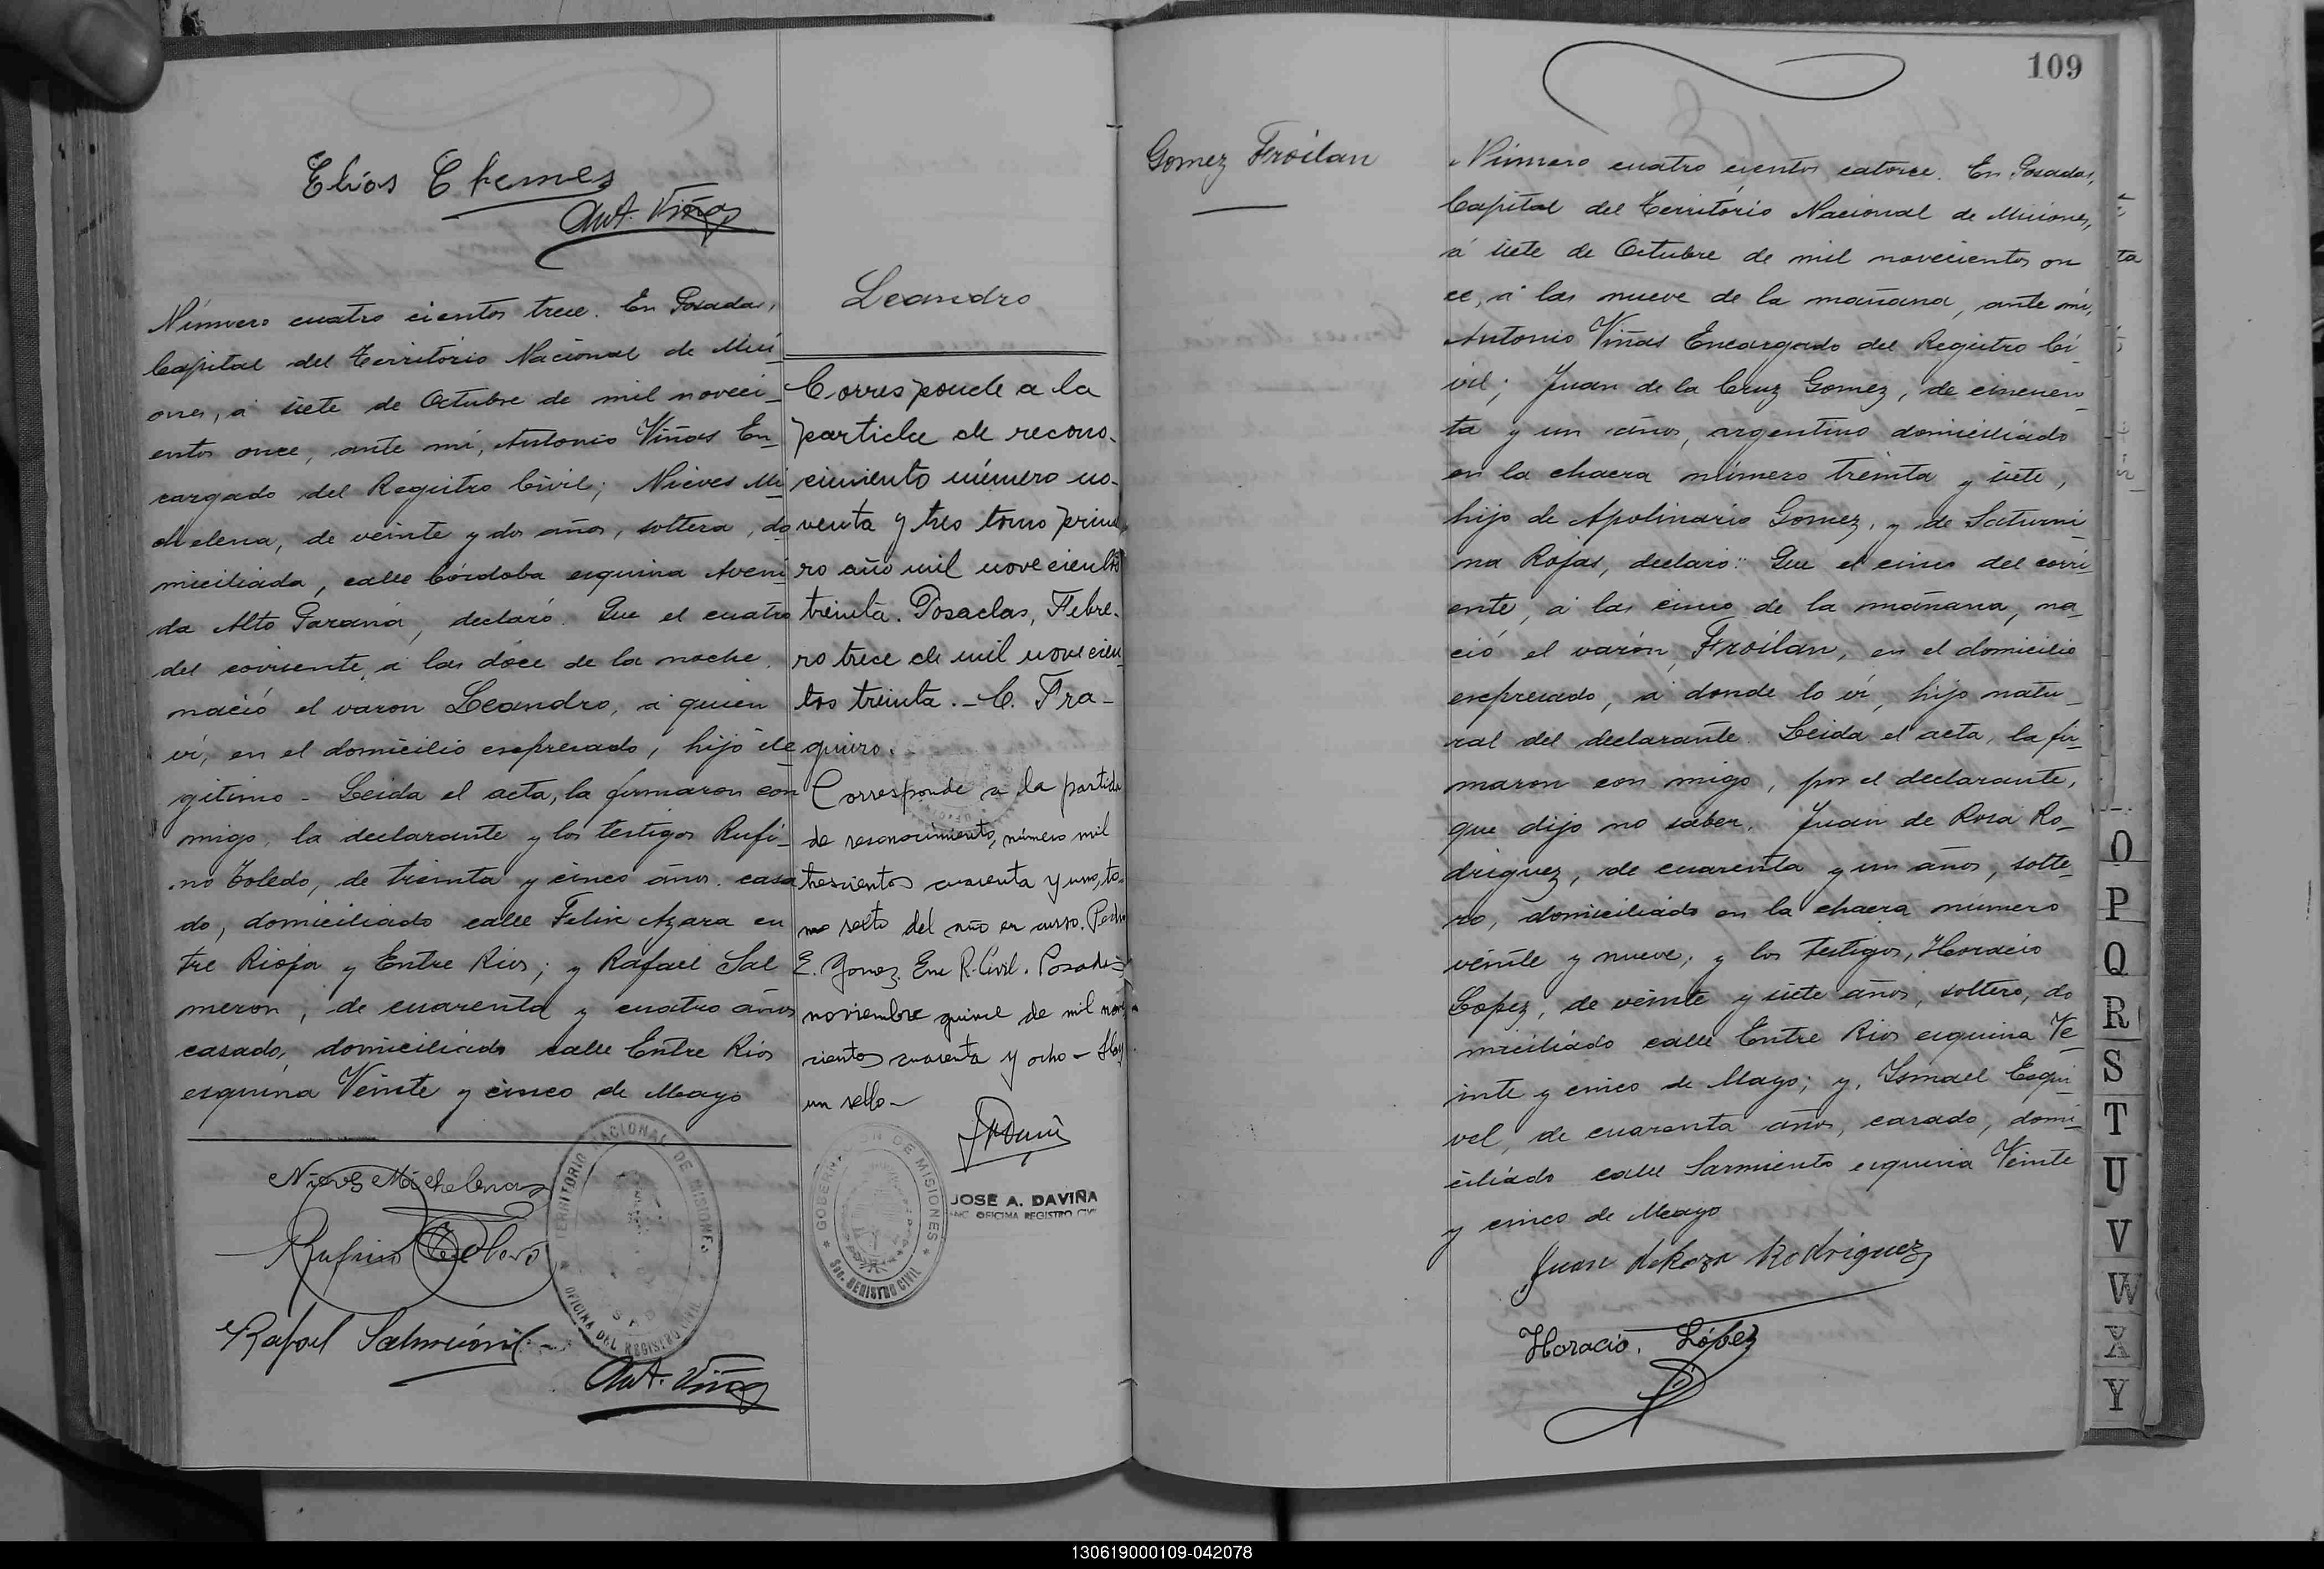 Elias Chemes
Ant. Viñas
Número cuatro cientos trece. En Posadas,
Capital del Território Nacional de Misi
ones, á siete de Octubre de mil noveci_
entos once, ante mí, Antonio Viñas En_
cargado del Registro Civil; Nieves Mi
chelena, de veinte y dos años, soltera, do
miciliada, calle Córdoba esquina Aveni
da Alto Paraná, declaró. Que el cuatro
del corriente, á las doce de la noche,
nació el varon Leandro, á quien
ví, en el domicilio expresado, hijo ile
gitimo - Leida el acta, la firmaron con
migo, la declarante y los testigos Rufi_
no Toledo, de treinta y cinco años. casa
do, domiciliado calle Felix Azara en
tre Rioja y Entre Rios; y Rafael Sal
meron, de cuarenta y cuatro años
casado, domiciliado calle Entre Rios
esquina Veinte y cinco de Mayo
Nieves Michelena
Rufino Toledo
Rafael Salmerón
Ant. Viñas
TERRITORIO NACIONAL DE MISIONES
OFICINA DEL REGISTRO CIVIL
Leandro
Corresponde a la
partida de recono-
cimiento número no-
venta y tres tomo prime
ro año mil novecientos
treinta. Posadas, Febre-
ro trece de mil novecien
tos treinta. - C. Fra-
guiro.
Corresponde a la partida
de reconocimiento, número mil
trescientos cuarenta y uno, to-
mo sexto del año en curso. Pedro
E. Gomez. Enc R. Civil. Posadas
noviembre quince de mil nove
cientos cuarenta y ocho - Hay
un sello -
GOBERNACION DE MISIONES
Sec. REGISTRO CIVIL
JOSE A. DAVIÑA
ENC OFICINA REGISTRO CIVIL
109
Gomez Froilan
Número cuatro cientos catorce. En Posadas,
Capital del Território Nacional de Misiones,
á siete de Octubre de mil novecientos on
ce, á las nueve de la mañana, ante mí,
Antonio Viñas Encargado del Registro Ci
vil; Juan de la Cruz Gomez, de cincuen_
ta y un años, argentino domiciliado
en la chacra número treinta y siete,
hijo de Apolinario Gomez, y de Saturni_
na Rojas, declaró: Que el cinco del corri_
ente, á las cinco de la mañana, na_
ció el varón, Froilan, en el domicilio
expresado, á donde lo ví, hijo natu_
ral del declarante. Leida el acta, la fir_
maron con migo, por el declarante,
que dijo no saber, Juan de Rosa Ro_
driguez, de cuarenta y un años, solte_
ro, domiciliado en la chacra numero
veinte y nueve, y los testigos, Horacio
Lopez, de veinte y siete años, soltero, do
miciliado calle Entre Rios esquina Ve_
inte y cinco de Mayo; y, Ismael Esqui_
vel, de cuarenta años, casado, domi_
ciliado calle Sarmiento esquina Veinte
y cinco de Mayo
Juan de Roza Rodriguez
Horacio. López
O
P
Q
R
S
T
U
V
W
X
Y
130619000109-042078